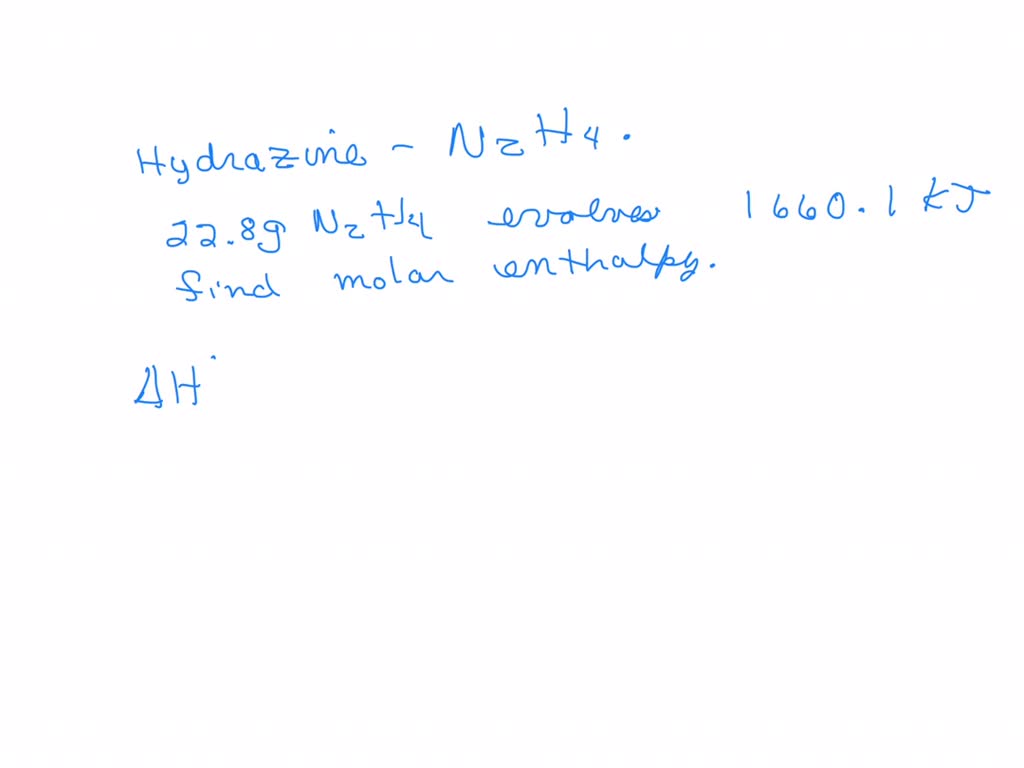 Hydrazine - N2H4.
22.8g N2H4 evolves 1660.1 kJ
find molar enthalpy.
ΔH°